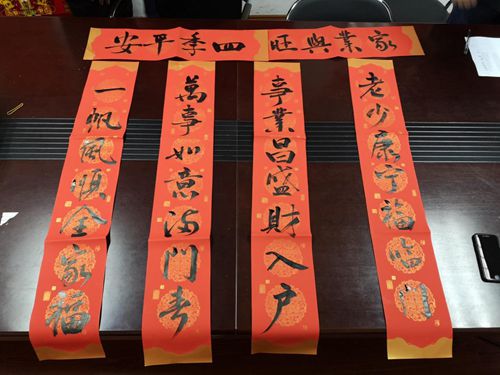 家業興旺
四季平安
老少康宁福临门
事業昌盛財入户
萬事如意满门春
一帆風順全家福